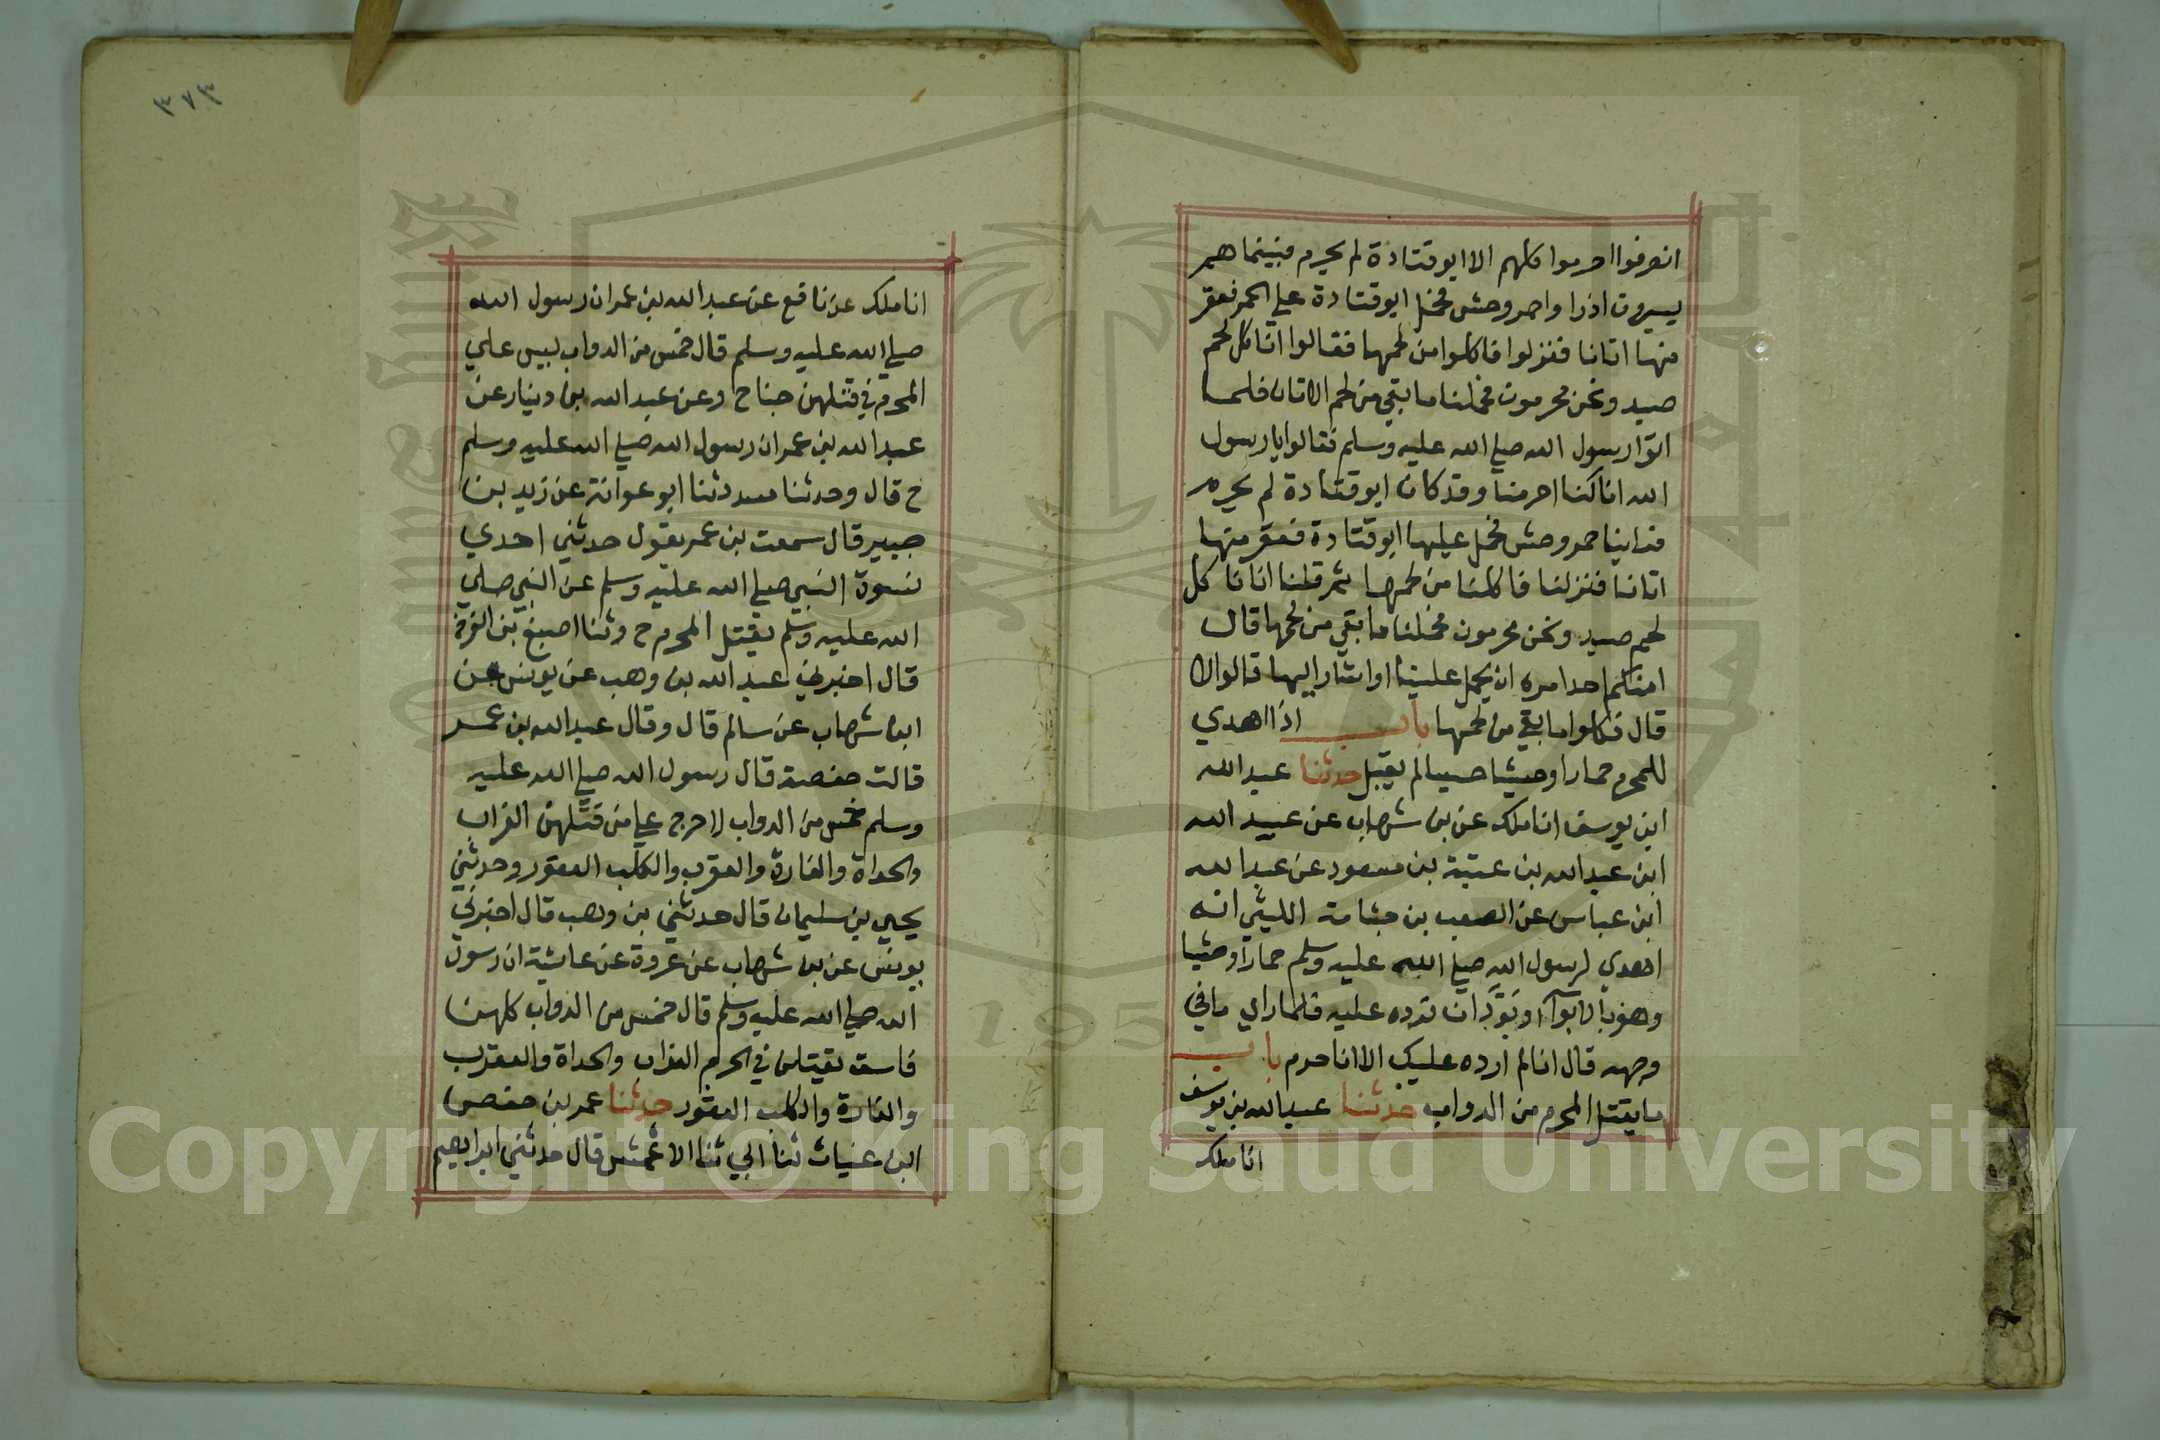 انصرفوا احرموا كلهم الا ابو قتادة لم يحرم فبينما هم
يسيرون اذ راوا حمر وحش فحمل ابو قتادة علي الحمر فعقر
منها اتانا فنزلوا فاكلوا من لحمها فقالوا اناكل لحم
صيد ونحن محرمون فحملنا ما بقي من لحم الاتان فلما
اتوا رسول الله صلي الله عليه وسلم فقالوا يا رسول
الله انا كنا احرمنا وقد كان ابو قتادة لم يحرم
فراينا حمر وحش فحمل عليها ابو قتادة فعقر منها
اتانا فنزلنا فاكلنا من لحمها ثم قلنا اناكل
لحم صيد ونحن محرمون فحملنا ما بقي من لحمها قال
امنكم احد امره ان يحمل علينا او اشار اليها قالوا لا
قال فكلوا ما بقي من لحمها باب اذا اهدي
للمحرم حمارا وحشيا حييا لم يقبل حدثنا عبد الله
ابن يوسف انا ملك عن بن شهاب عن عبيد الله
ابن عبد الله بن عتبة بن مسعود عن عبد الله
ابن عباس عن الصعب بن جثامة الليثي انه
اهدي لرسول الله صلي الله عليه وسلم حمارا وحشيا
وهو بالابوآ او بودان فرده عليه فلما راي ما في
وجهه قال انا لم ارده عليك الا انا حرم باب
ما يقتل المحرم من الدواب حدثنا عبد الله بن يوسف
انا ملك
٣٧٣
انا ملك عن نافع عن عبد الله بن عمر ان رسول الله
صلي الله عليه وسلم قال خمس من الدواب ليس علي
المحرم في قتلهن جناح وعن عبد الله بن دينار عن
عبد الله بن عمر ان رسول الله صلي الله عليه وسلم
ح قال وحدثنا مسدد ثنا ابو عوانة عن زيد بن
جبير قال سمعت بن عمر يقول حدثني احدي
نسوة النبي صلي الله عليه وسلم عن النبي صلي
الله عليه وسلم يقتل المحرم ح وثنا اصبغ بن الفرج
قال اخبرني عبد الله بن وهب عن يونس عن
ابن شهاب عن سالم قال وقال عبد الله بن عمر
قالت حفصة قال رسول الله صلي الله عليه
وسلم خمس من الدواب لا حرج علي من قتلهن الغراب
والحداة والفارة والعقرب والكلب العقور وحدثني
يحيي بن سليمان قال حدثني بن وهب قال اخبرني
يونس عن بن شهاب عن عروة عن عايشة ان رسول
الله صلي الله عليه وسلم قال خمس من الدواب كلهن
فاسق يقتلن في الحرم الغراب والحداة والعقرب
والفارة والكلب العقور حدثنا عمر بن حفص
ابن غياث ثنا ابي ثنا الاعمش قال حدثني ابراهيم
1957
Copyright © King Saud University